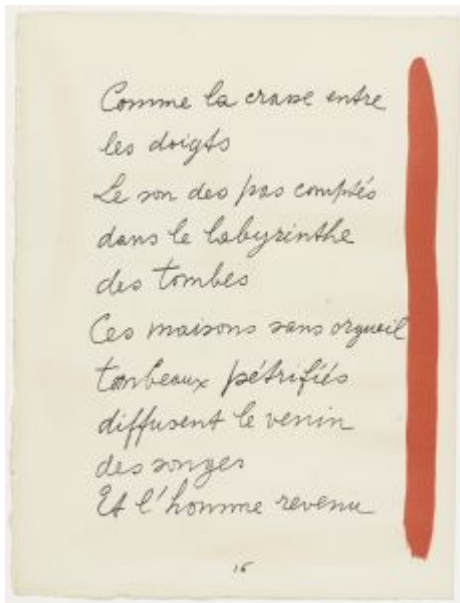 Comme la crasse entre
les doigts
Le son des pas comptés
dans le labyrinthe
des tombes
Ces maisons sans orgueil
tombeaux pétrifiés
diffusent le venin
des songes
Et l'homme revenu
16